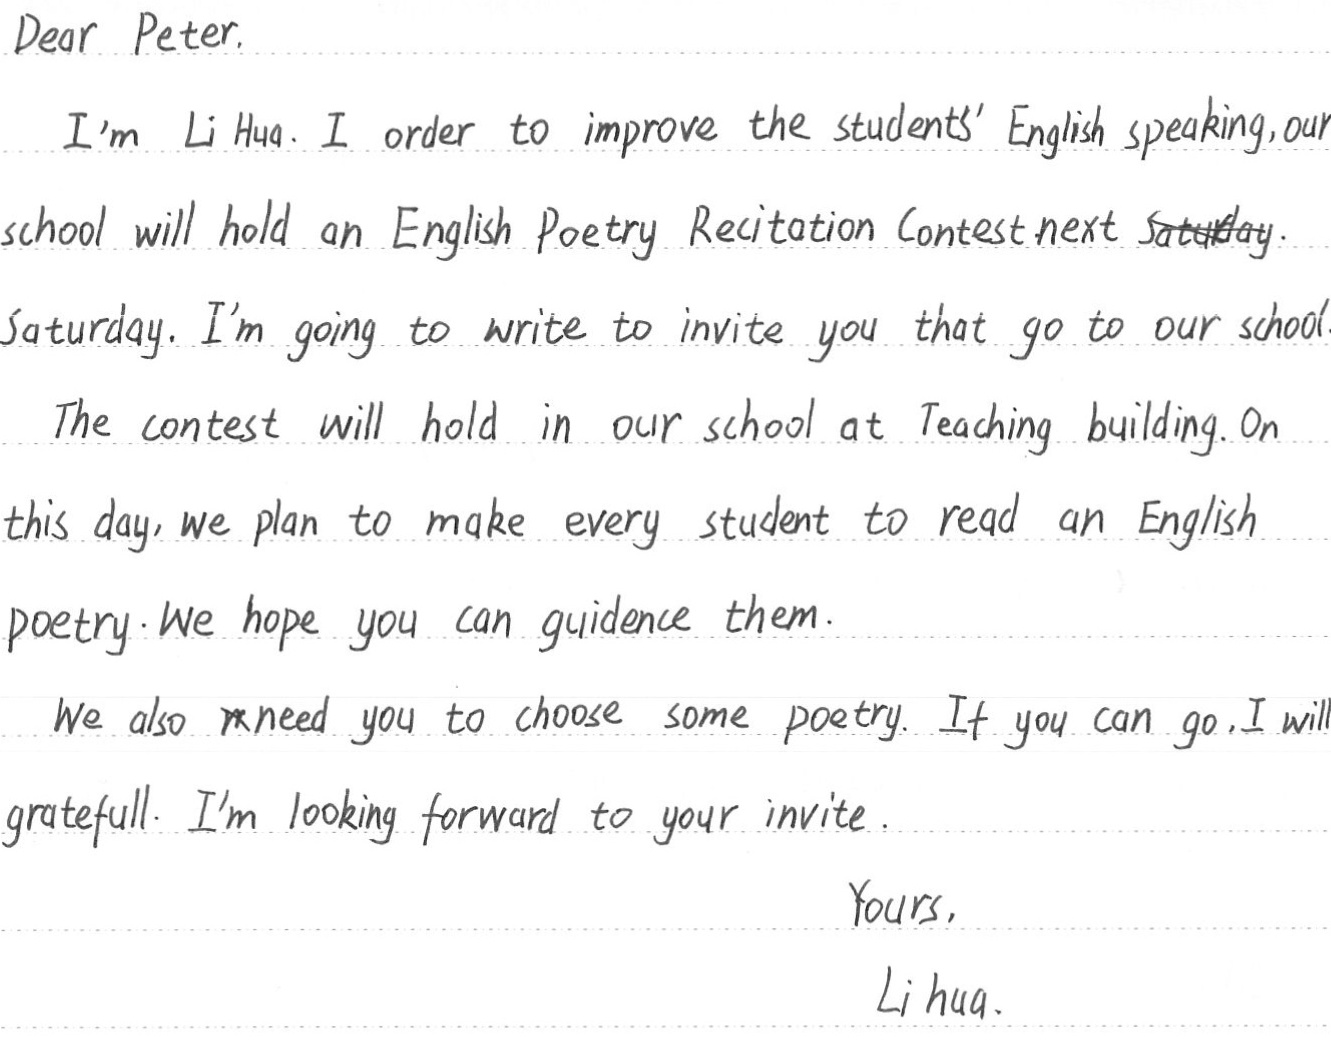 Dear Peter.
I'm Li Hua. I order to improve the students' English speaking, our
school will hold an English Poetry Recitation Contest next Saturday.
Saturday. I'm going to write to invite you that go to our school.
The contest will hold in our school at Teaching building. On
this day, we plan to make every student to read an English
poetry. We hope you can guidence them.
We also need you to choose some poetry. If you can go, I will
gratefull. I'm looking forward to your invite.
Yours,
Li hua.